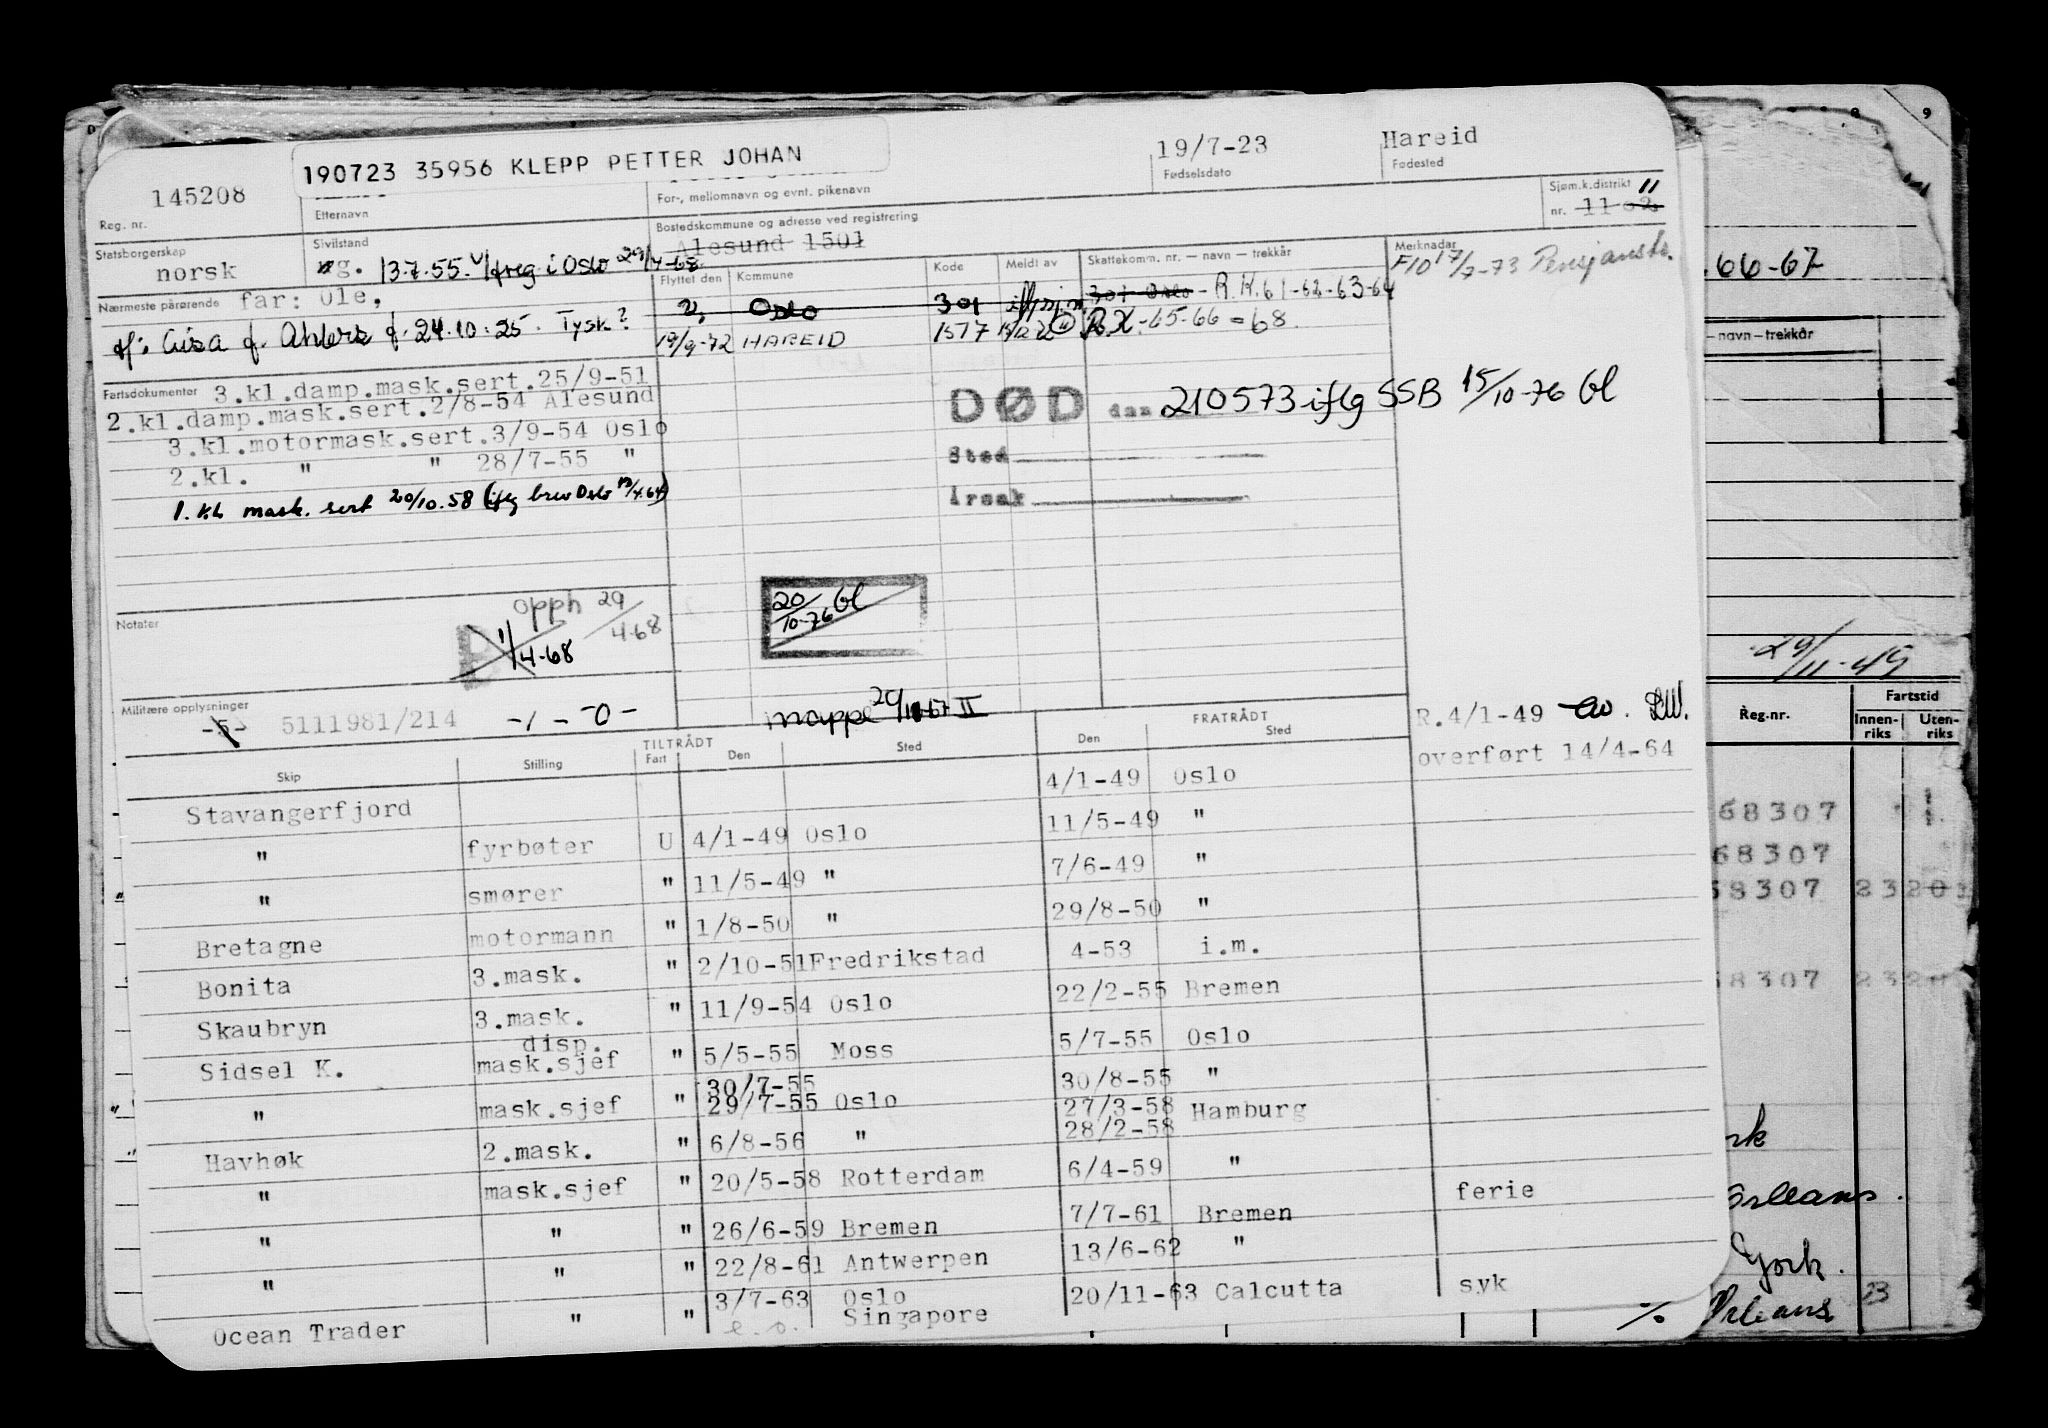 190723 35956 KLEPP PETTER JOHAN
19/7-23
Fødselsdato
Hareid
Fødested
145208
Reg. nr.
Etternavn
For-, mellomnavn og evnt. pikenavn
Sjøm.k.distrikt 11
nr. 11 02
Statsborgerskap
norsk
Sivilstand
g. 13.7.55. i Oslo 29/4-68
Bostedskommune og adresse ved registrering
Alesund 1501
Nærmeste pårørende far: Ole,
f. Ahlers f. 24.10.25. Tysk?
Flyttet den
Kommune
Kode
Meldt av
Skattekom. nr. – navn – trekkår
Merknader
F10 17/7-73 Pensjonstr.
Oslo 301 301 Oslo - R.K. 61-62-63-64
19/9-72 HAREID 1517 R.K. -65-66-68
Fartsdokumenter 3.kl.damp.mask.sert.25/9-51
2.kl.damp.mask.sert.2/8-54 Alesund
3.kl.motormask.sert.3/9-54 Oslo
2.kl. " " 28/7-55 "
1. kl. mask. sert 20/10.58 (iflg brev Oslo 13/4.64)
DØD den 210573 iflg SSB 15/10-76 Gl
Sted
Årsak
Notater
opph 29/4-68
1/4-68
20/10-76 Gl
Militære opplysninger
5111981/214 -1-0-
mappe II
R.4/1-49
overført 14/4-64
TILTRÅDT
FRATRÅDT
Skip Stilling Fart Den Sted Den Sted
Stavangerfjord 4/1-49 Oslo
" fyrbøter U 4/1-49 Oslo 11/5-49 "
" smører " 11/5-49 " 7/6-49 "
Bretagne motormann " 1/8-50 " 29/8-50 "
Bonita 3.mask. " 2/10-51 Fredrikstad 4-53 i.m.
Skaubryn 3.mask. " 11/9-54 Oslo 22/2-55 Bremen
Sidsel K. disp. mask.sjef " 5/5-55 Moss 5/7-55 Oslo
30/7-55
" mask.sjef " 29/7-55 Oslo 30/8-55 "
27/3-58
Havhøk 2.mask. " 6/8-56 " 28/2-58 Hamburg
" mask.sjef " 20/5-58 Rotterdam 6/4-59 "
" " " 26/6-59 Bremen 7/7-61 Bremen ferie
" " " 22/8-61 Antwerpen 13/6-62 "
3/7-63 Oslo
Ocean Trader " " e.o. Singapore 20/11-63 Calcutta syk
8 9
66-67
–navn–trekkår
29/11-49
Reg.nr.
Fartstid
Innen-riks
Uten-riks
68307
68307
68307 2320
8307 232
Orleans.
York.
Orleans 23